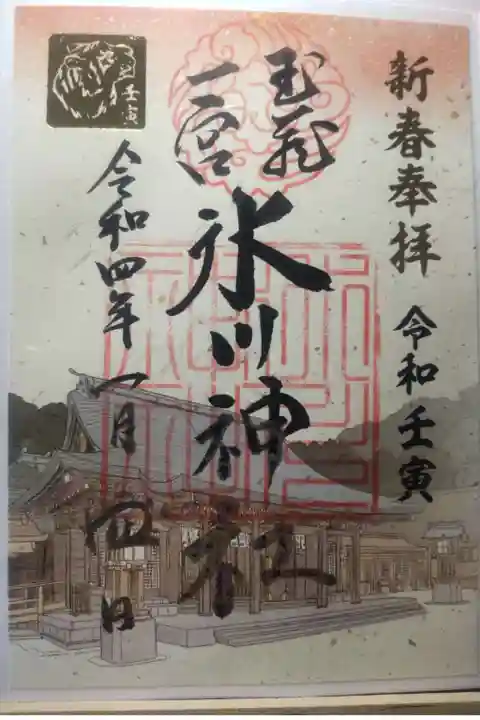 新春奉拝
令和壬寅
武蔵
一宮
氷川神社
令和四年一月四日
壬寅